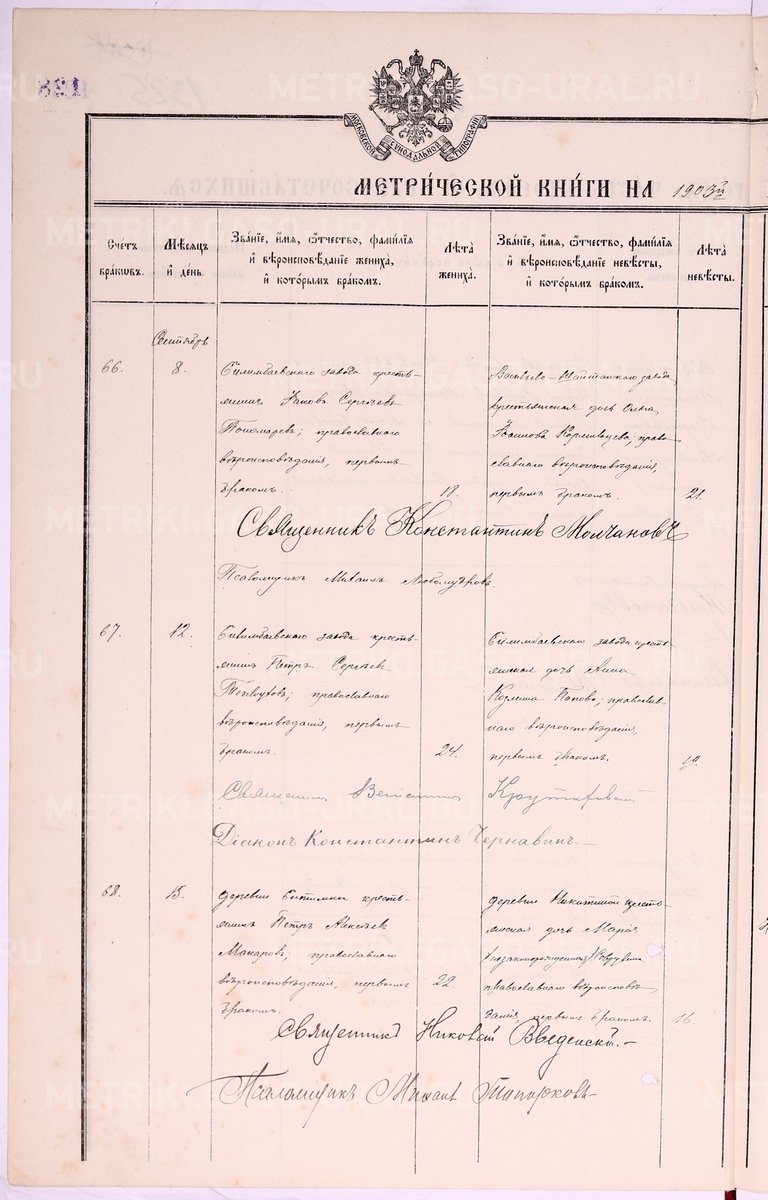 821
МОСКОВСКОЙ СУНОДАЛЬНОЙ ТИПОГРАФІИ
МЕТРИ́ЧЕСКОЙ КНИ́ГИ НА 1903й
Сче́тъ бра́кѡвъ.
Мѣ́сѧцъ и҆ де́нь.
Зва́нїе, и҆́мѧ, ѻ҆́тчество, фами́лїѧ и҆ вѣроисповѣ́данїе жениха̀, и҆ кото́рымъ бра́комъ.
Лѣ́та жениха̀.
Зва́нїе, и҆́мѧ, ѻ҆́тчество, фами́лїѧ и҆ вѣроисповѣ́данїе невѣ́сты, и҆ кото́рымъ бра́комъ.
Лѣ́та невѣ́сты.
Сентябрь
66.
8.
Билимбаевскаго завода кресть-
янинъ Іаковъ Сергѣевъ
Пономаревъ; православнаго
вѣроисповѣданія, первымъ
бракомъ.
18.
Васильево-Шайтанскаго завода
крестьянская дочь
православнаго вѣроисповѣданія,
первымъ бракомъ.
21.
Священникъ Константинъ Молчановъ
Псаломщикъ Михаилъ Любомудровъ.
67.
12.
Билимбаевскаго завода кресть-
янинъ Петръ Сергѣевъ
православнаго
вѣроисповѣданія, первымъ
бракомъ.
24.
Билимбаевскаго завода кресть-
янская дочь Анна
Козмина Попова; православ-
наго вѣроисповѣданія,
первымъ бракомъ.
19.
Священникъ
Діаконъ Константинъ Чернавинъ.
68.
15.
деревни Битимки кресть-
янинъ Петръ Алексѣевъ
Макаровъ; православнаго
вѣроисповѣданія, первымъ
бракомъ.
22
деревни Никитиной кресть-
янская дочь Марія
(незаконнорожденная)
православнаго вѣроисповѣ-
данія, первымъ бракомъ.
16
Священникъ Николай Введенскій.
Псаломщикъ Михаилъ Топорковъ
METRIKI.GASO-URAL.RU